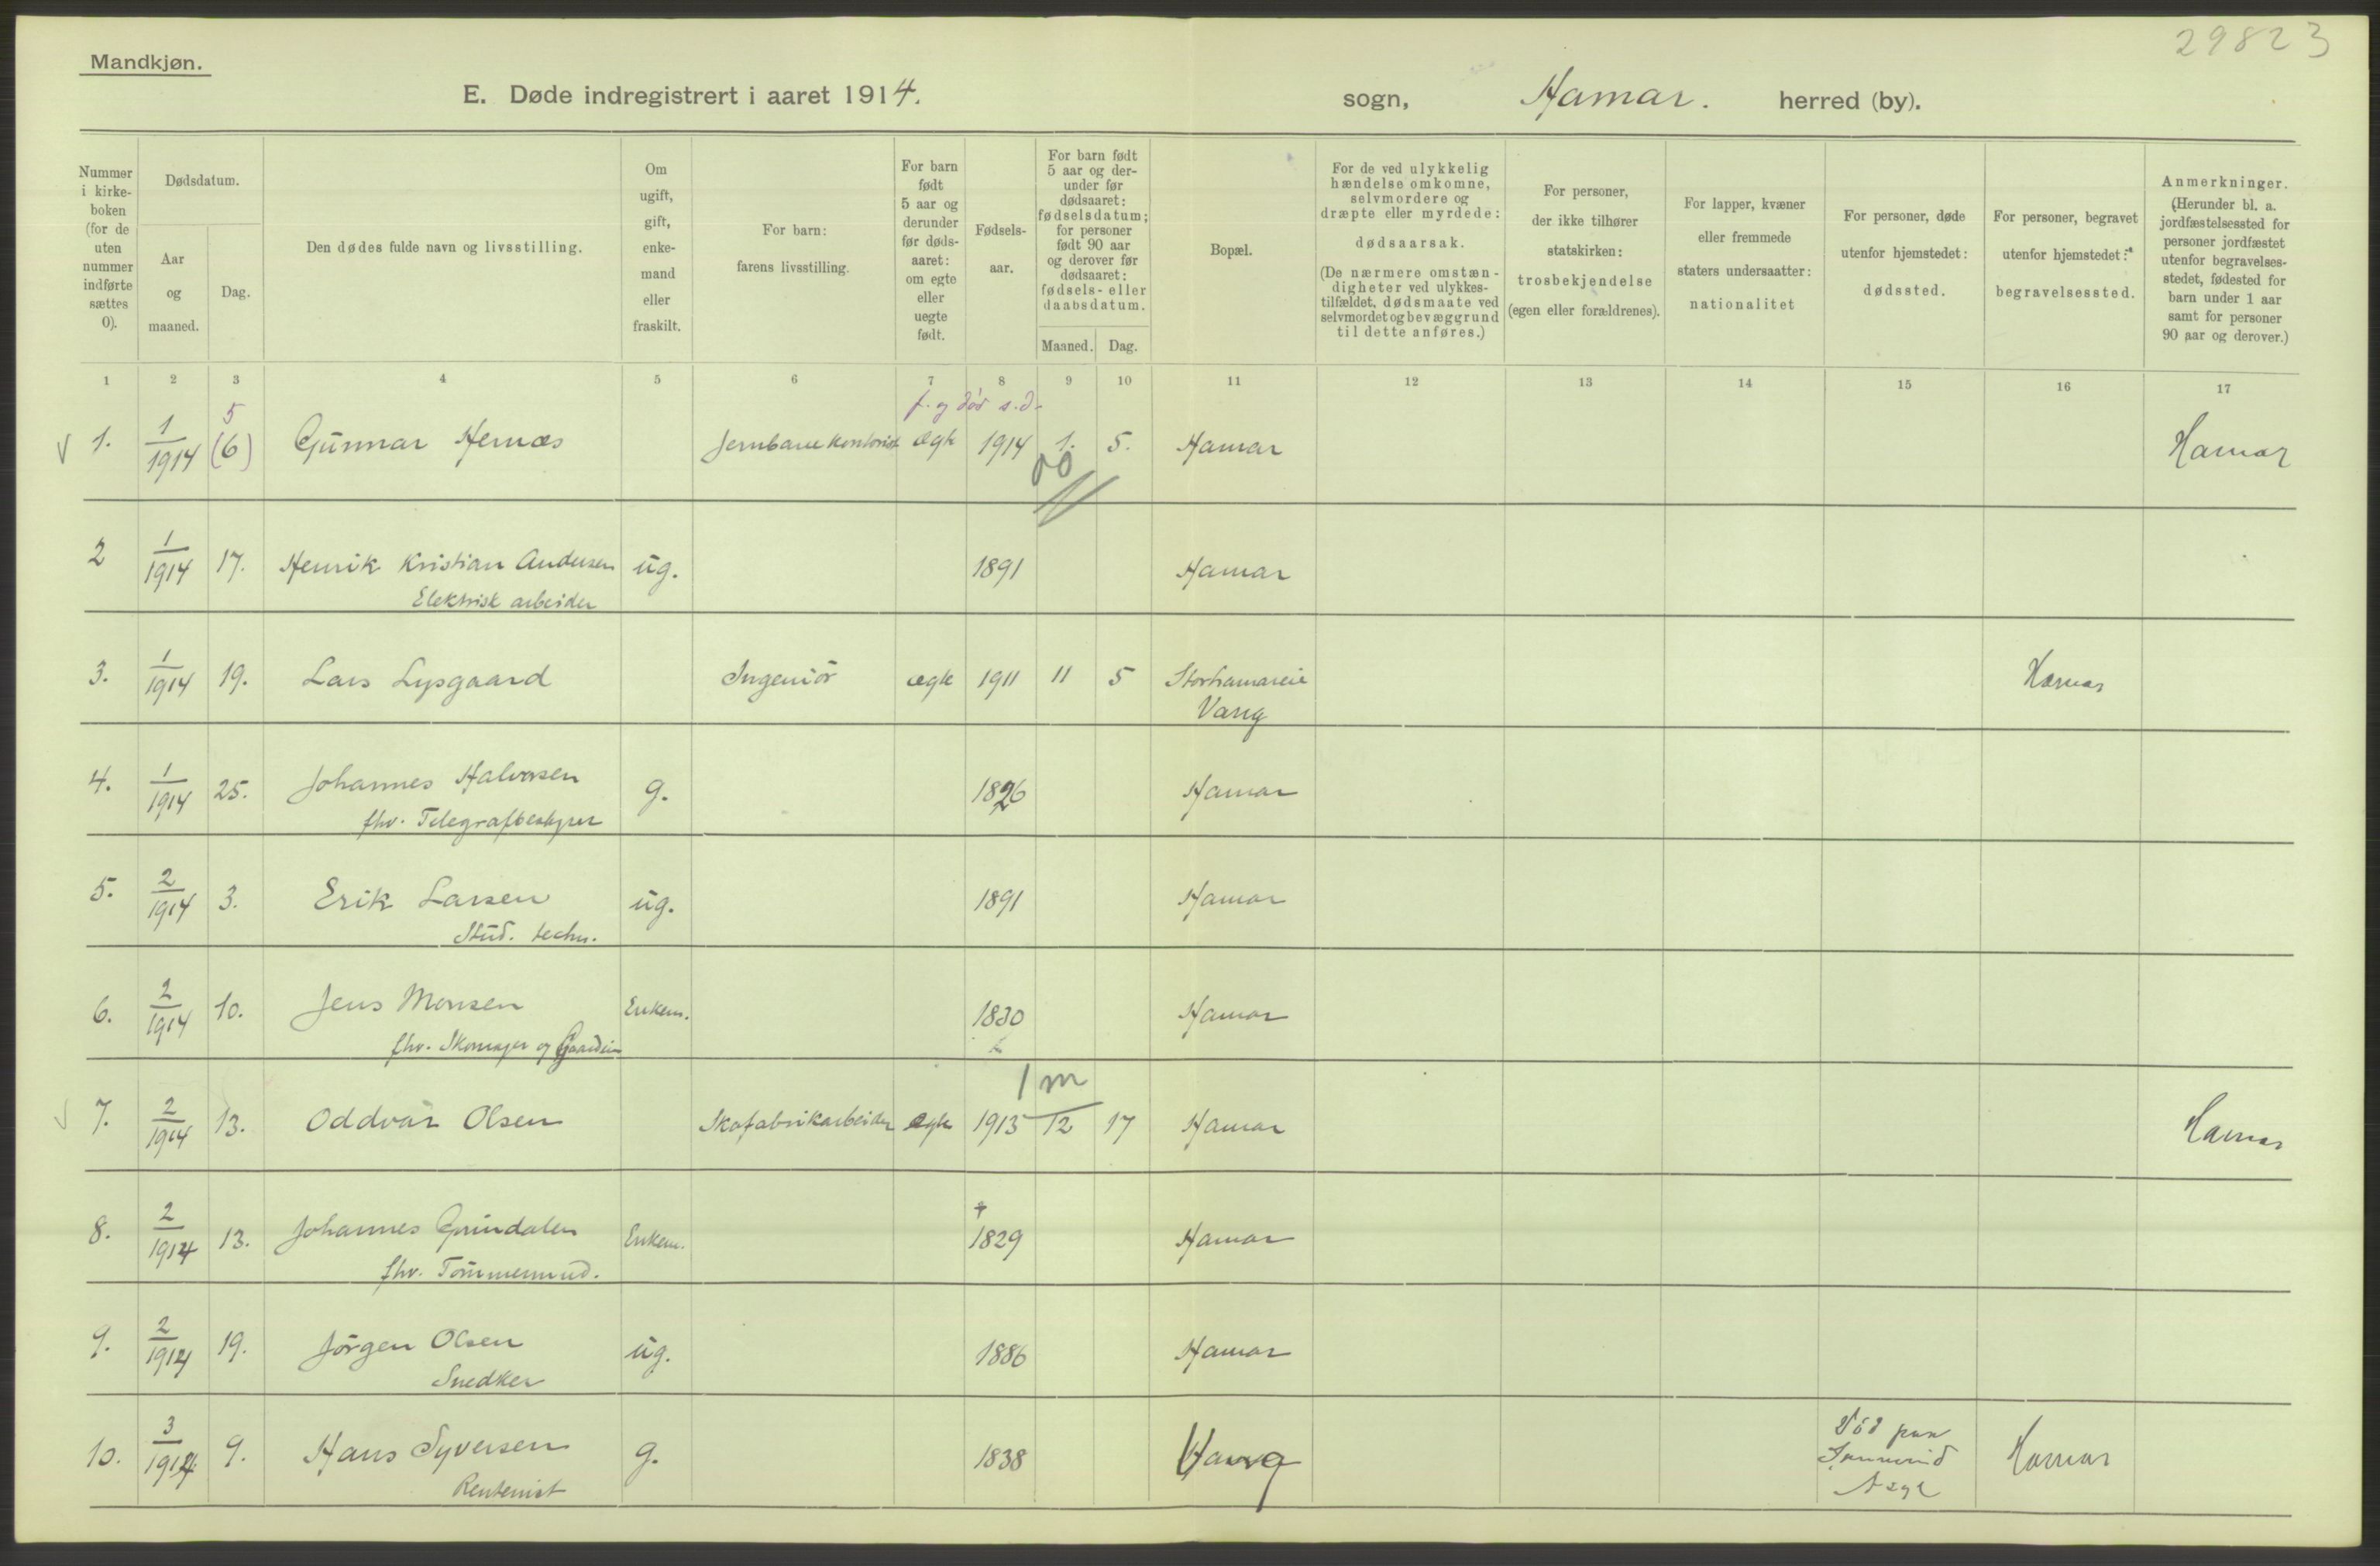 29823
Mandkjøn.
E. Døde indregistrert i aaret 1914. sogn, Hamar. herred (by).
Nummer i kirke-boken (for de uten nummer indførte sættes 0).
Dødsdatum.
Aar og maaned.
Dag.
Den dødes fulde navn og livsstilling.
Om ugift, gift, enke-mand eller fraskilt.
For barn: farens livsstilling.
For barn født 5 aar og derunder før døds-aaret: om egte eller uegte født.
Fødsels-aar.
For barn født 5 aar og der-under før dødsaaret: fødselsdatum; for personer født 90 aar og derover før dødsaaret: fødsels- eller daabsdatum.
Maaned. Dag.
Bopæl.
For de ved ulykkelig hændelse omkomne, selvmordere og dræpte eller myrdede: dødsaarsak. (De nærmere omstæn-digheter ved ulykkes-tilfældet, dødsmaate ved selvmordet og bevæggrund til dette anføres.)
For personer, der ikke tilhører statskirken: trosbekjendelse (egen eller forældrenes).
For lapper, kvæner eller fremmede staters undersaatter: nationalitet
For personer, døde utenfor hjemstedet: dødssted.
For personer, begravet utenfor hjemstedet: begravelsessted.
Anmerkninger. (Herunder bl. a. jordfæstelsessted for personer jordfæstet utenfor begravelses-stedet, fødested for barn under 1 aar samt for personer 90 aar og derover.)
1 2 3 4 5 6 7 8 9 10 11 12 13 14 15 16 17
5 f. og død s.d.
1. 1/1914 (6) Gunnar Hernæs Jernbanekontorist ægte 1914 1. 5. Hamar Hamar
00
2 1/1914 17. Henrik Kristian Andersen ug. 1891 Hamar
Elektrisk arbeider
3. 1/1914 19. Lars Lysgaard Ingeniør ægte 1911 11 5 Storhamareie Hamar
Vang
4. 1/1914 25. Johannes Halvorsen g. 1826 Hamar
fhv. Telegrafbestyrer
5. 2/1914 3. Erik Larsen ug. 1891 Hamar
Stud. techn.
6. 2/1914 10. Jens Monsen Enkem. 1830 Hamar
fhv. Skomager og Gaardeier
1 m
7. 2/1914 13. Oddvar Olsen Skofabrikarbeider ægte 1913 12 17 Hamar Hamar
8. 2/1914 13. Johannes Grindalen Enkem. 1829 Hamar
fhv. Tømmermand.
9. 2/1914 19. Jørgen Olsen ug. 1886 Hamar
Snedker
10. 3/1914 9. Hans Syversen g. 1838 Vang Død paa Hamar
Rentenist Asyl